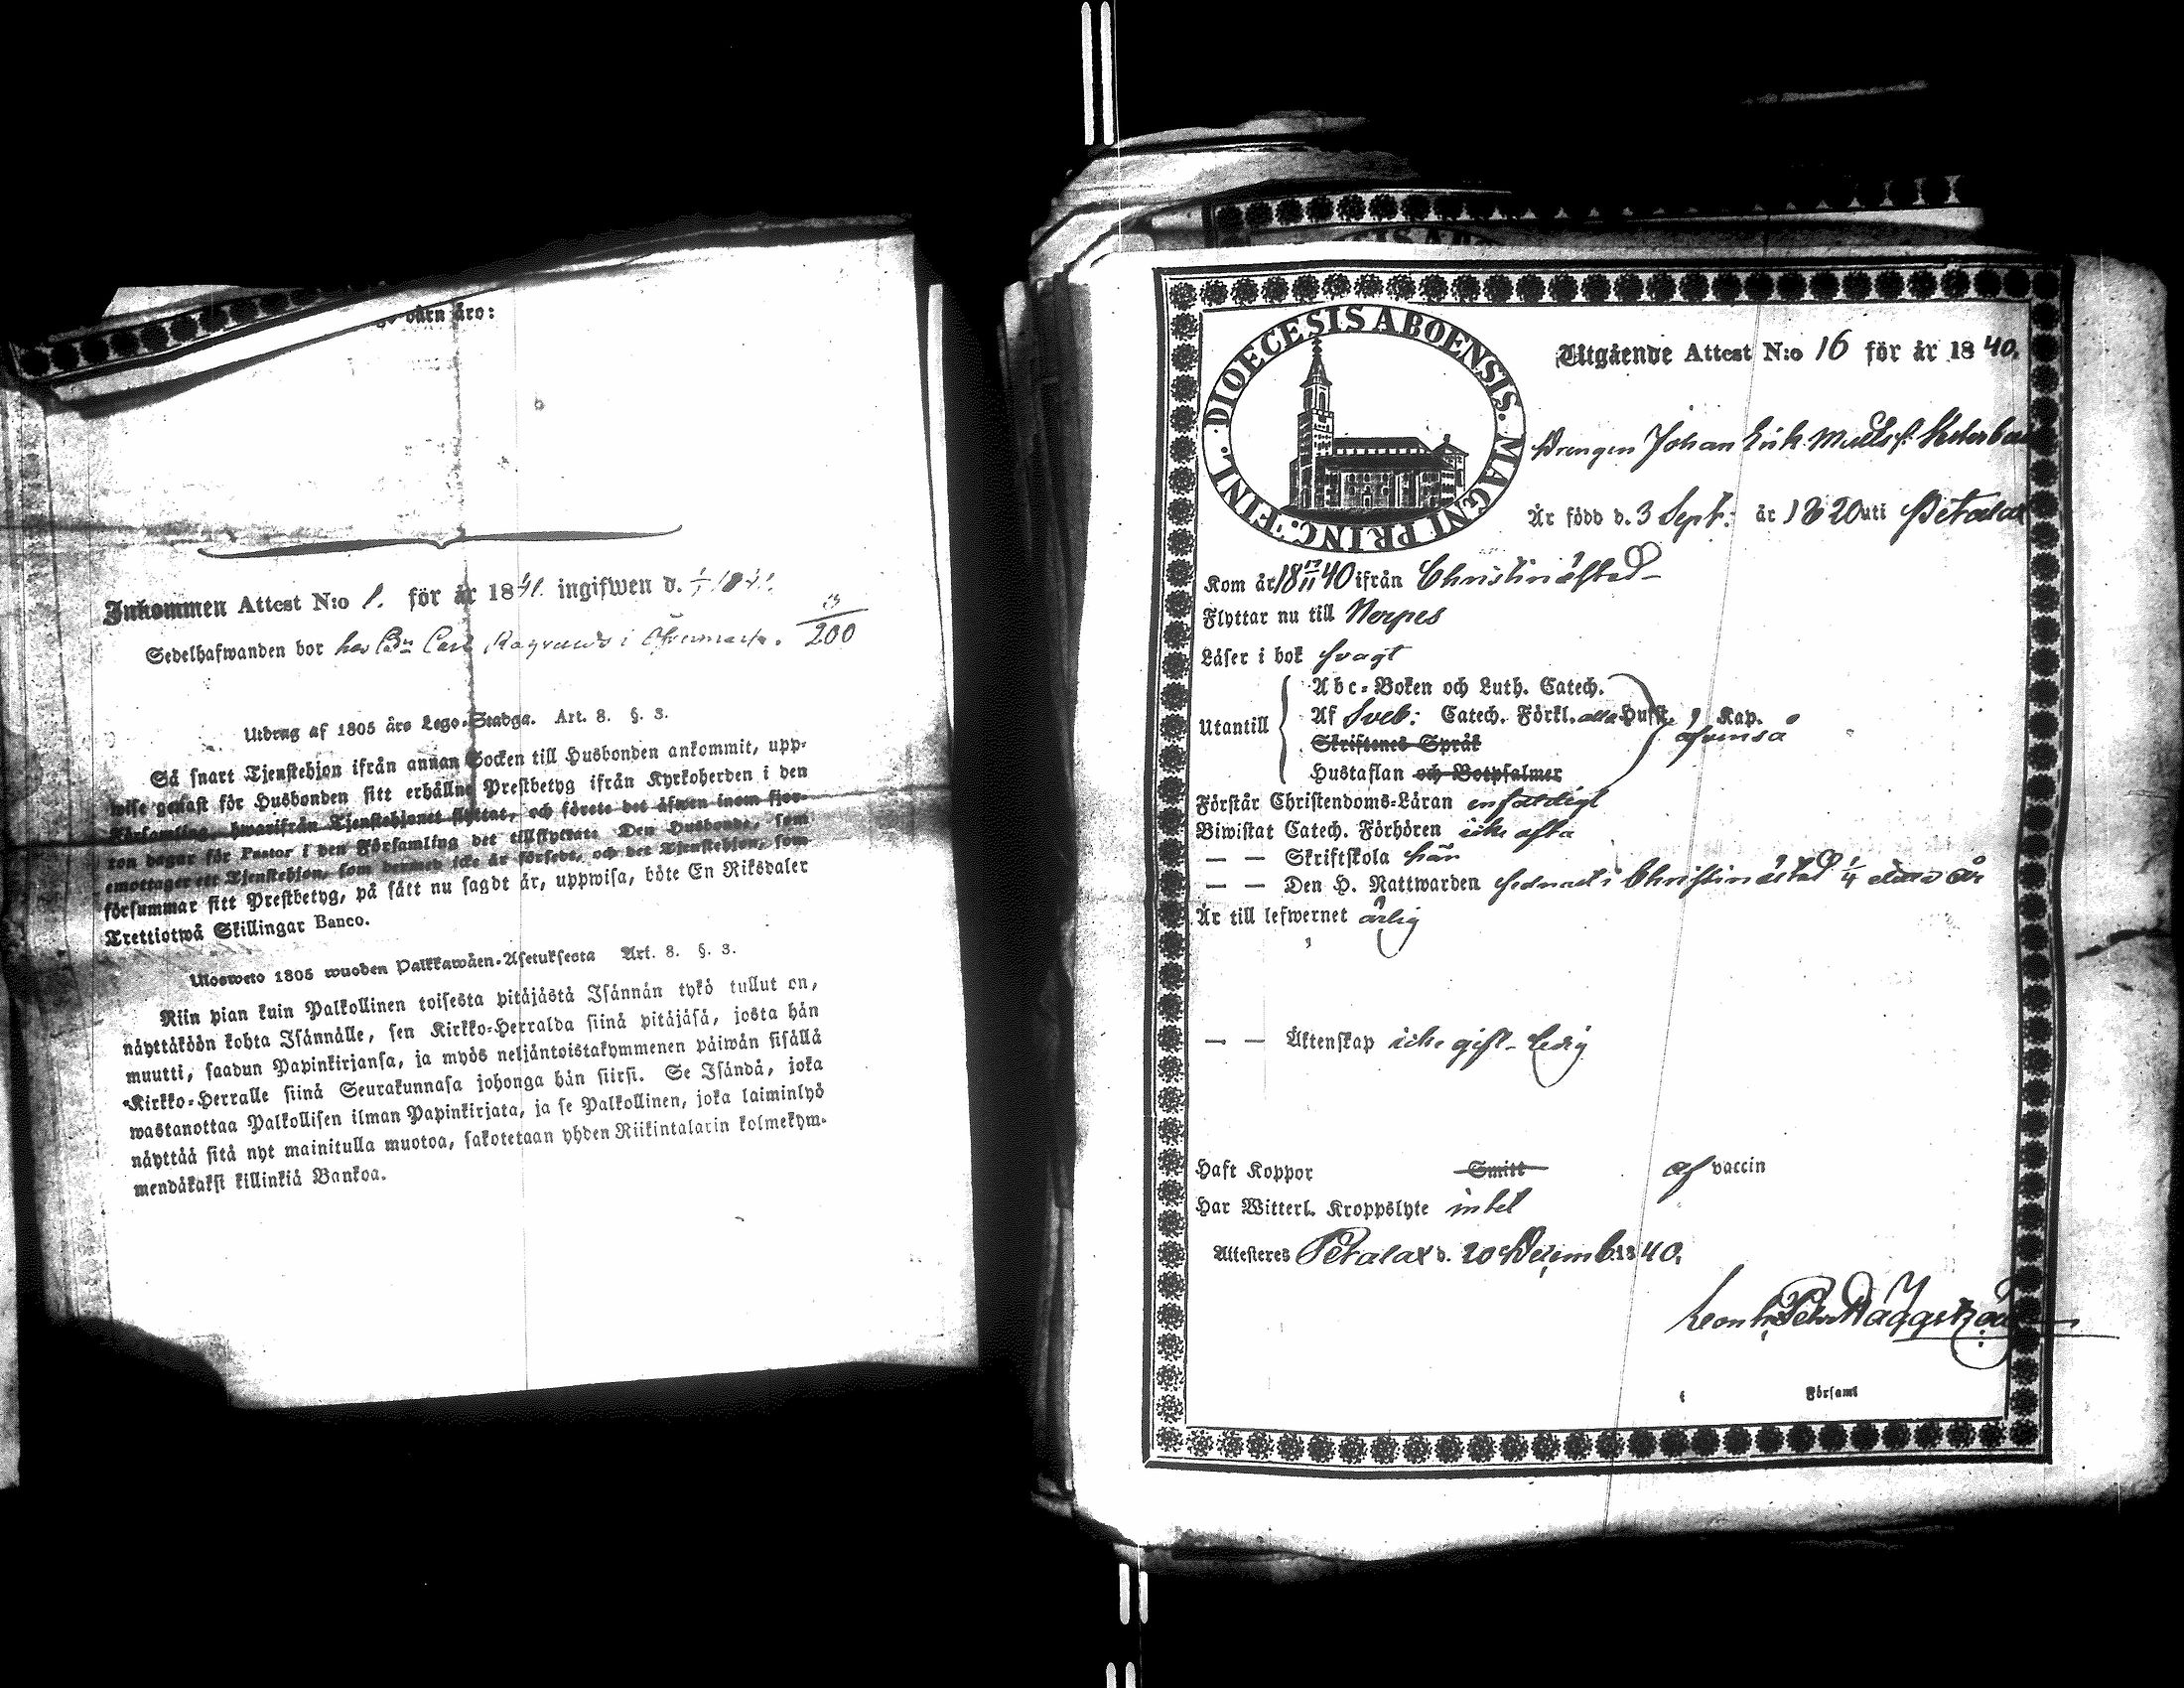 barn äro:
Inkommen Attest N:o 1. för år 1841. ingifwen d.
Sedelhafwanden bor hos Bn Carl i Öfvermark. 200
Utdrag af 1805 års Lego-Stadga. Art. 8. §. 3.
Så snart Tjenstehjon ifrån annan Socken till Husbonden ankommit, upp-
wise genast för Husbonden sitt erhållne Prestbetyg ifrån Kyrkoherden i den
Församling, hwarifrån Tjenstehjonet flyttat, och förete det äfwen inom fjor-
ton dagar för Pastor i den Församling det tillflyttat. Den Husbonde, som
emottager ett Tjenstehjon, som dermed icke är försedt, och det Tjenstehjon, som
försummar sitt Prestbetyg, på sätt nu sagdt är, uppwisa, böte En Riksdaler
Trettiotwå Skillingar Banco.
Ulosweto 1805 wuoden Palkkawäen-Asetuksesta Art. 8. §. 3.
Niin pian kuin Palkollinen toisesta pitäjästä Isännän tykö tullut on,
näyttäköön kohta Isännälle, sen Kirkko-Herralda siinä pitäjäsä, josta hän
muutti, saadun Papinkirjansa, ja myös neljäntoistakymmenen päiwän sisällä
Kirkko-Herralle siinä Seurakunnasa johonga hän siirsi. Se Isändä, joka
wastanottaa Palkollisen ilman Papinkirjata, ja se Palkollinen, joka laiminlyö
näyttää sitä nyt mainitulla muotoa, sakotetaan yhden Riikintalarin kolmekym-
mendäkaksi killinkiä Bankoa.
DIOECESIS ABOENSIS. MAGNI PRINC. FINL.
Utgående Attest N:o 16 för år 1840.
Drengen Johan Erik Matts s.
Är född d. 3 Sept: år 1820 uti Petalax
Kom år 18 40 ifrån Christinæstad
Flyttar nu till Nerpes
Läser i bok svagt
Abc-Boken och Luth. Catech.
Utantill Af Sveb: Catech. Förkl. alla Hufst. 9 Kap.
Skriftenes Språk
afvenså
Hustaflan och Botpsalmer
Förstår Christendoms-Läran enfaldigt
Biwistat Catech. Förhören icke ofta
— — Skriftskola här
— — Den H. Nattwarden sednast i Christinæstad
Är till lefwernet ärlig
— — Äktenskap icke gift - ledig
Haft Koppor Smitt af vaccin
Har Witterl. Kroppslyte intet
Attesteres Petalax d. 20 Decemb. 1840.
Församl